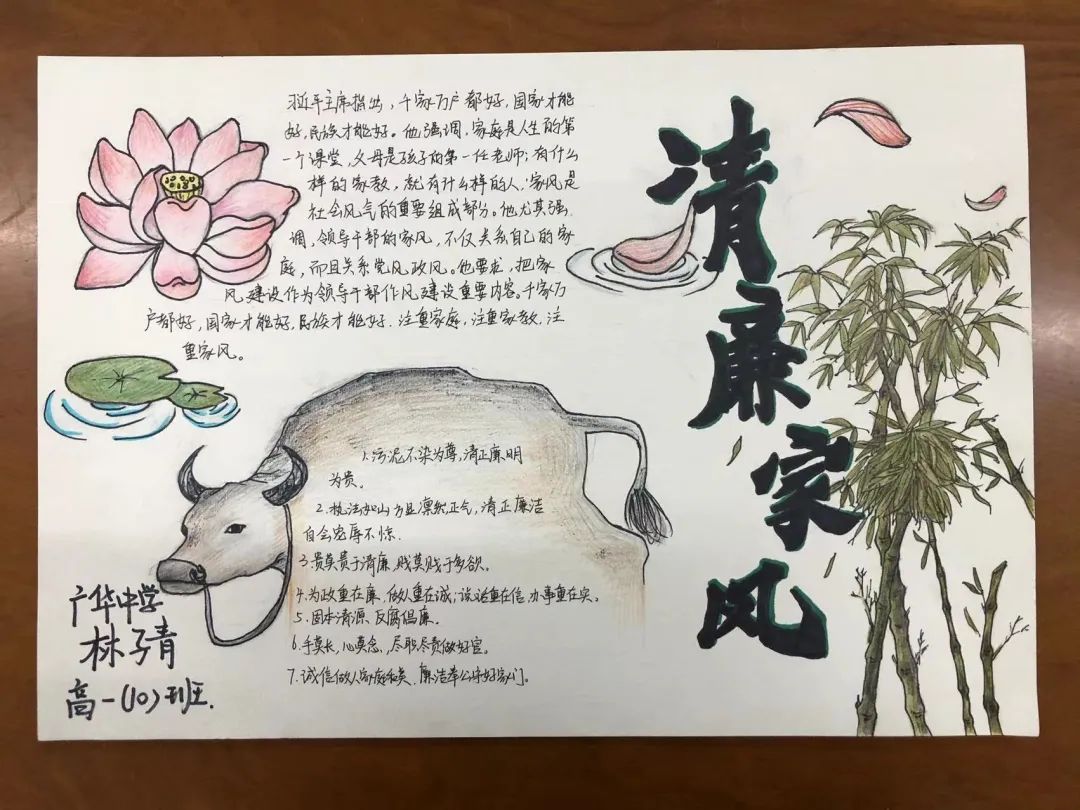 清廉家风
习近平主席指出，千家万户都好，国家才能
好，民族才能好。他强调，家庭是人生的第
一个课堂，父母是孩子的第一任老师；有什么
样的家教，就有什么样的人。家风是
社会风气的重要组成部分。他尤其强
调，领导干部的家风，不仅关系自己的家
庭，而且关系党风政风。他要求，把家
风建设作为领导干部作风建设重要内容。千家万
户都好，国家才能好，民族才能好．注重家庭，注重家教，注
重家风。
1.污泥不染为尊，清正廉明
为贵。
2.执法如山方显凛然正气，清正廉洁
自会宠辱不惊．
3.贵莫贵于清廉，贱莫贱于多欲。
4.为政重在廉，做人重在诚；说话重在信，办事重在实。
5.固本清源、反腐倡廉。
6.手莫长，心莫念，尽职尽责做好官。
7.诚信做人家庭和美．廉洁奉公守好家门。
广华中学
林子青
高一(10)班.